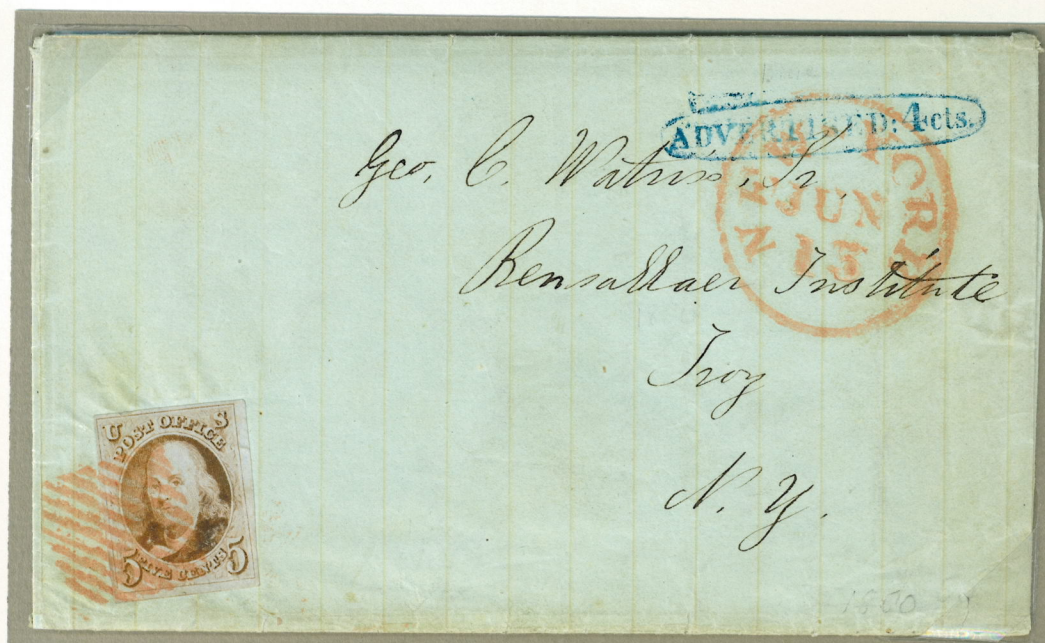 ADVERTISED: 4 cts.
NEW YORK
JUN
15
Geo. C. Waters, Jr.
Rensallaer Institute
Troy
N. Y.
U S
POST OFFICE
FIVE CENTS
5 5
1850